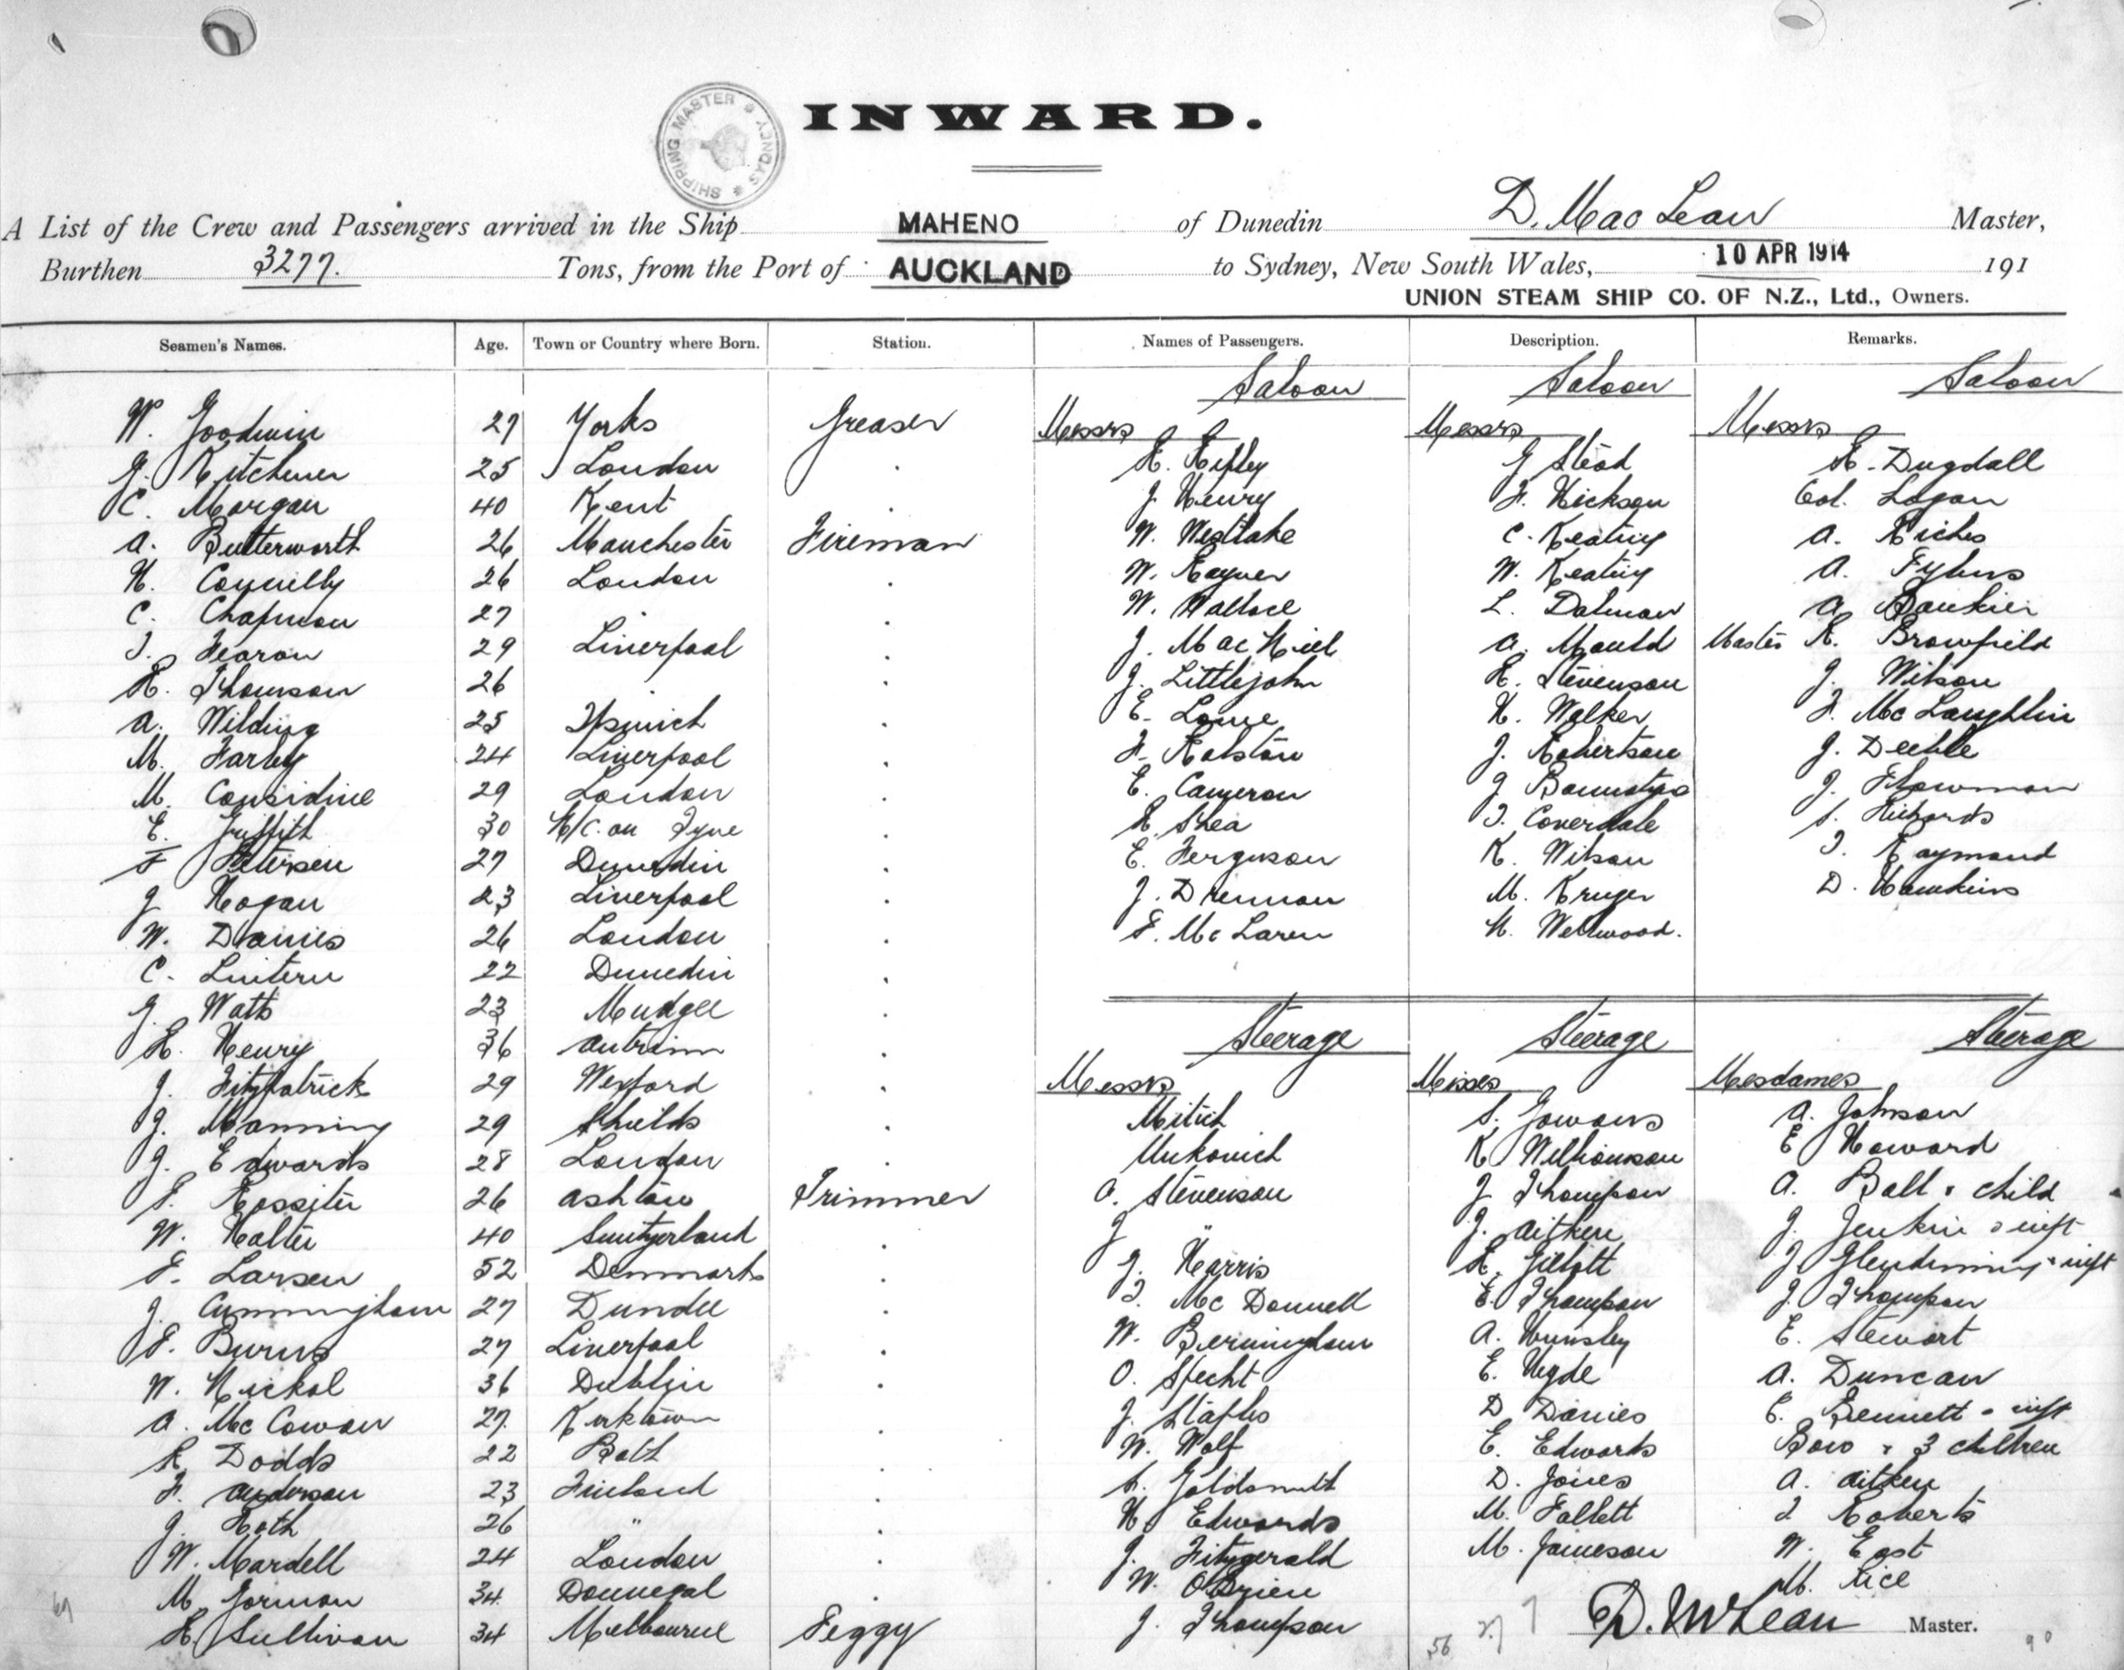 SHIPPING MASTER * SYDNEY *
INWARD.
A List of the Crew and Passengers arrived in the Ship MAHENO of Dunedin D. MacLean Master,
Burthen 3277. Tons, from the Port of AUCKLAND to Sydney, New South Wales, 10 APR 1914 191
UNION STEAM SHIP CO. OF N.Z., Ltd., Owners.
Seamen's Names. Age. Town or Country where Born. Station. Names of Passengers. Description. Remarks.
Saloon Saloon Saloon
W. Goodwin 27 Yorks Greaser Messrs Messrs Messrs
G. Kitchener 25 London . R. Ripley G Stead R. Dugdall
C. Morgan 40 Kent . J Henry F. Hickson Col. Logan
A. Butterworth 26 Manchester Fireman W. Westlake C. Keating A. Riches
H. Connelly 26 London . W. Rayner W. Keating A.
C. Chapman 27 . . W. Wallace L. Dalman A. Bankier
T. Fearon 29 Liverpool . J. MacNiel A. Mould Master R. Brownfield
R. Thomson 26 . . J. Littlejohn R. Stevenson J. Wilson
A. Wilding 25 Ipswich . E. Lowe H. Walker F. McLaughlin
M. Farley 24 Liverpool . F. Rolston J. Robertson J. Deeble
M. Considine 29 London . E. Cameron J J. Plowman
E. Griffith 30 N/C. on Tyne . R. Shea T. Coverdale S. Richards
F Petersen 27 Dunedin . E. Ferguson K. Wilson T. Raymond
J Hogan 23 Liverpool . J. Drennan M. Kruger D. Hawkins
W. Davies 26 London . F. McLaren H. Wellwood.
C. Lintern 22 Dunedin .
G. Watts 23 Mudgee .
R. Henry 36 Antrim . Steerage Steerage Steerage
J. Fitzpatrick 29 Wexford . Messrs Misses Mesdames
J. Manning 29 Shields . Mitich S. Gowans A. Johnson
J. Edwards 28 London . K Williamson E Howard
F. Rossiter 26 Ashton Trimmer A. Stevenson J Thompson A. Ball & child
W. Halter 40 Switzerland . J " J. Aitken J. Jenkin & inft
F. Larsen 52 Denmark . J. Harris R. J Glendinning & inft
J. Cunningham 27 Dundee . T. McDonnell E. Thompson J. Thompson
F. Burns 27 Liverpool . W. Bermingham A. Hunsley E. Stewart
W. Nickol 36 Dublin . O. Specht E. Hyde A. Duncan
A. McCowan 27. Kirktown . J. Staples D Davies E. Bennett & inft
R. Dodds 22 . W. Wolf E. Edwards & 3 children
F. Anderson 23 Finland . S. Goldsmith D. Jones A. Aitken
J. Roth 26 " . H Edwards M. Follett Roberts
W. Mardell 24 London . J. Fitzgerald M. Jameson W. East
M. Gorman 34 Donnegal . W. O'Brien M. Rice
R. Sullivan 34 Melbourne Peggy J. Thompson D. McLean Master.
56